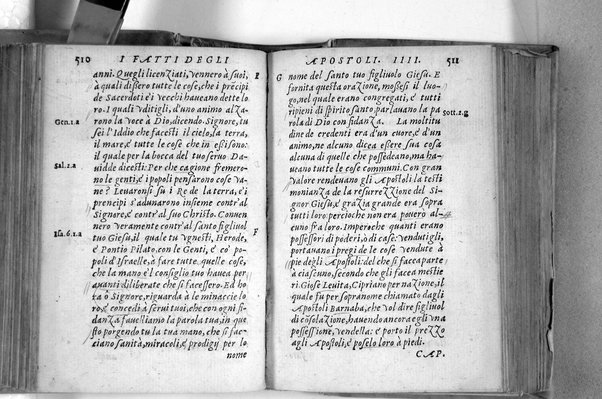 510 I FATTI DEGLI
anni. Quegli licenziati, vennero à suoi,
à quali dißero tutte le cose, che i prēcipi
de Sacerdoti e i vecchi haueano dette lo
ro. I quali vditigli, d'uno animo alza-
rono la voce à Dio, dicendo. Signore, tu
sei l'Iddio che facesti il cielo, la terra,
il mare, e tutte le cose che in eßi sono:
il quale per la bocca del tuo seruo Da-
uidde dicesti: Per che cagione fremero-
no le genti, e i popoli pensarono cose va-
ne? Leuaronsi su i Re de la terra, e i
prencipi s'adunarono insieme contr'al
Signore, e contr'al suo Christo. Conuen
nero veramente contr'al santo figliuol
tuo Giesù, il quale tu vgnesti, Herode,
e Pontio Pilato, con le Genti, e co' po-
poli d'Israelle, à fare tutte quelle cose,
che la mano e'l consiglio tuo hauea per
auanti diliberate che si facessero. Ed ho
ra ò Signore, riguarda à le minaccie lo
ro, e concedi à serui tuoi, che con ogni fi-
dāza fauelliamo la parola tua, in que
sto porgendo tu la tua mano, che si fac-
ciano sanità, miracoli, e prodigij per lo
nome
Gen.1.a
Sal.2.a
Isa.6.1.a
E
F
APOSTOLI. IIII. 511
G nome del santo tuo figliuolo Giesù. E
fornita questa orazione, moßesi il luo-
go, nel quale erano congregati, e tutti
ripieni di spirito santo, parlauano la pa
rola di Dio con fidanza. La moltitu
dine de credenti era d'un cuore, e d'un
animo, ne alcuno dicea eßere sua cosa
alcuna di quelle che possedeano, ma ha-
ueano tutte le cose communi. Con gran
valore rendeuano gli Apostoli la testi
monianza de la resurrezzione del Si-
gnor Giesù, e grazia grande era sopra
tutti loro: percioche non era pouero al-
cuno fra loro. Imperoche quanti erano
possessori di poderi, ò di case, vendutigli,
portauano i pregi de le cose vendute à
pie degli Apostoli: del che si facea parte
à ciascuno, secondo che gli facea mestie
ri. Giose Leuita, Cipriano per nazione, il
quale fu per soprannome chiamato dagli
Apostoli Barnaba, che vol dire figliuol
di cōsolazione, hauendo ancora egli vna
possessione, vendella: e portò il prezzo
agli Apostoli, e poselo loro à piedi.
CAP.
Sott.2.g